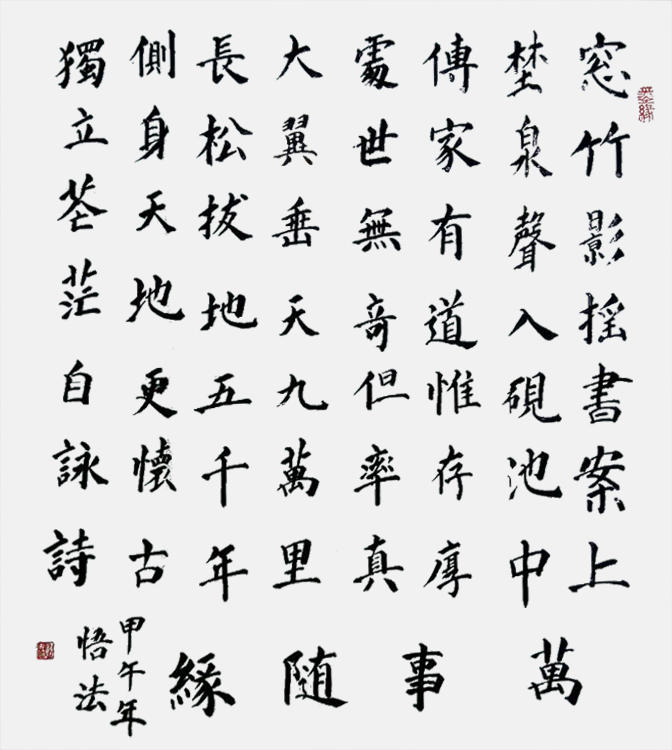 窓竹影摇書案上
埜泉聲入硯池中
傳家有道惟存厚
處世無奇但率真
大翼垂天九萬里
長松拔地五千年
側身天地更懷古
獨立蒼茫自詠詩
萬事隨緣
甲午年
悟法